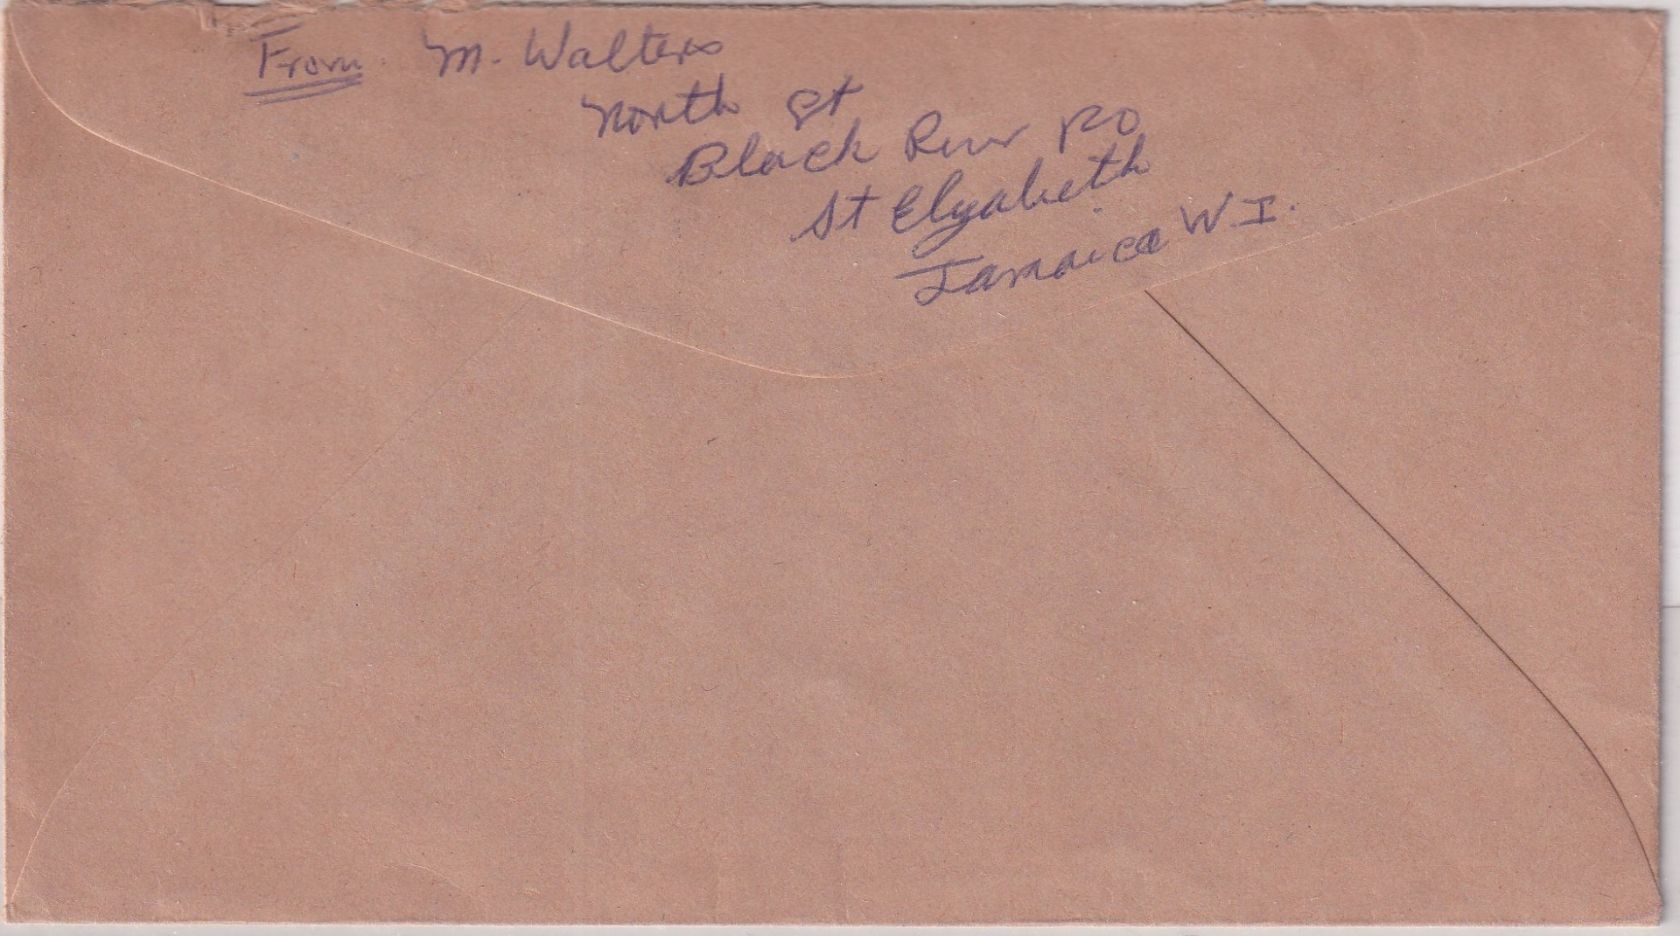 From. M. Walters
North St
Black River PO
St Elizabeth
Jamaica W.I.